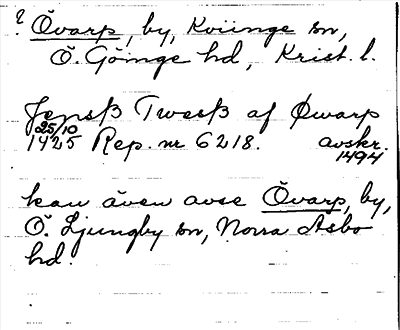 ? Övarp, by, Kviinge sn,
Ö. Göinge hd, Krist. l.
Jensß Twesß af Øwarp
25/10
1425 Rep. nr 6218. avskr.
1494
kan även avse Övarp, by,
Ö. Ljungby sn, Norra Åsbo
hd.